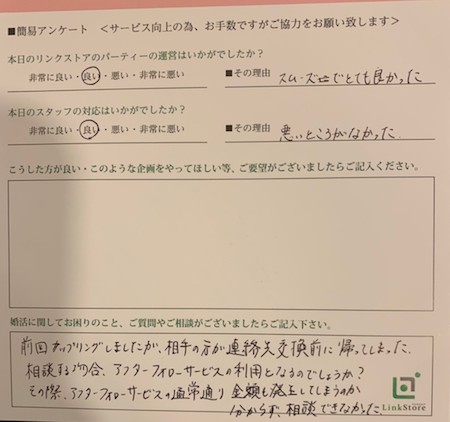 ■簡易アンケート　＜サービス向上の為、お手数ですがご協力をお願い致します＞
本日のリンクストアのパーティーの運営はいかがでしたか？
非常に良い・良い・悪い・非常に悪い　■その理由　スムーズでとても良かった
本日のスタッフの対応はいかがでしたか？
非常に良い・良い・悪い・非常に悪い　■その理由　悪いところがなかった.
こうした方が良い・このような企画をやってほしい等、ご要望がございましたらご記入ください。
婚活に関してお困りのこと、ご質問やご相談がございましたらご記入下さい。
前回カップリングしましたが、相手の方が連絡先交換前に帰ってしまった.
相談する場合、アフターフォローサービスの利用となるのでしょうか？
その際、アフターフォローサービスの通常通り金額も発生してしまうのか
分からず、相談できなかった.
LinkStore